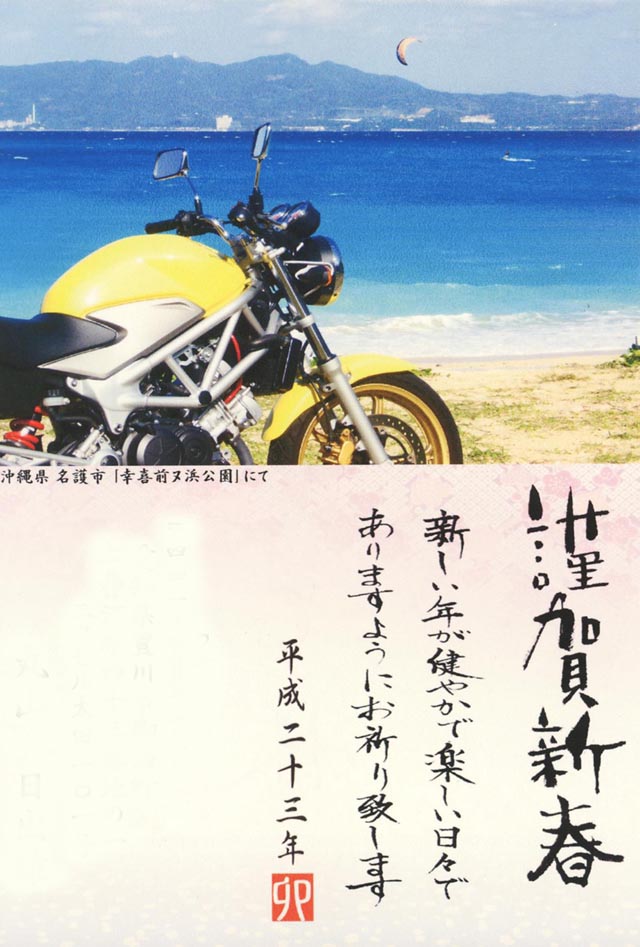 沖縄県 名護市 「幸喜前ヌ浜公園」にて
謹賀新春
新しい年が健やかで楽しい日々で
ありますようにお祈り致します
平成二十三年
卯